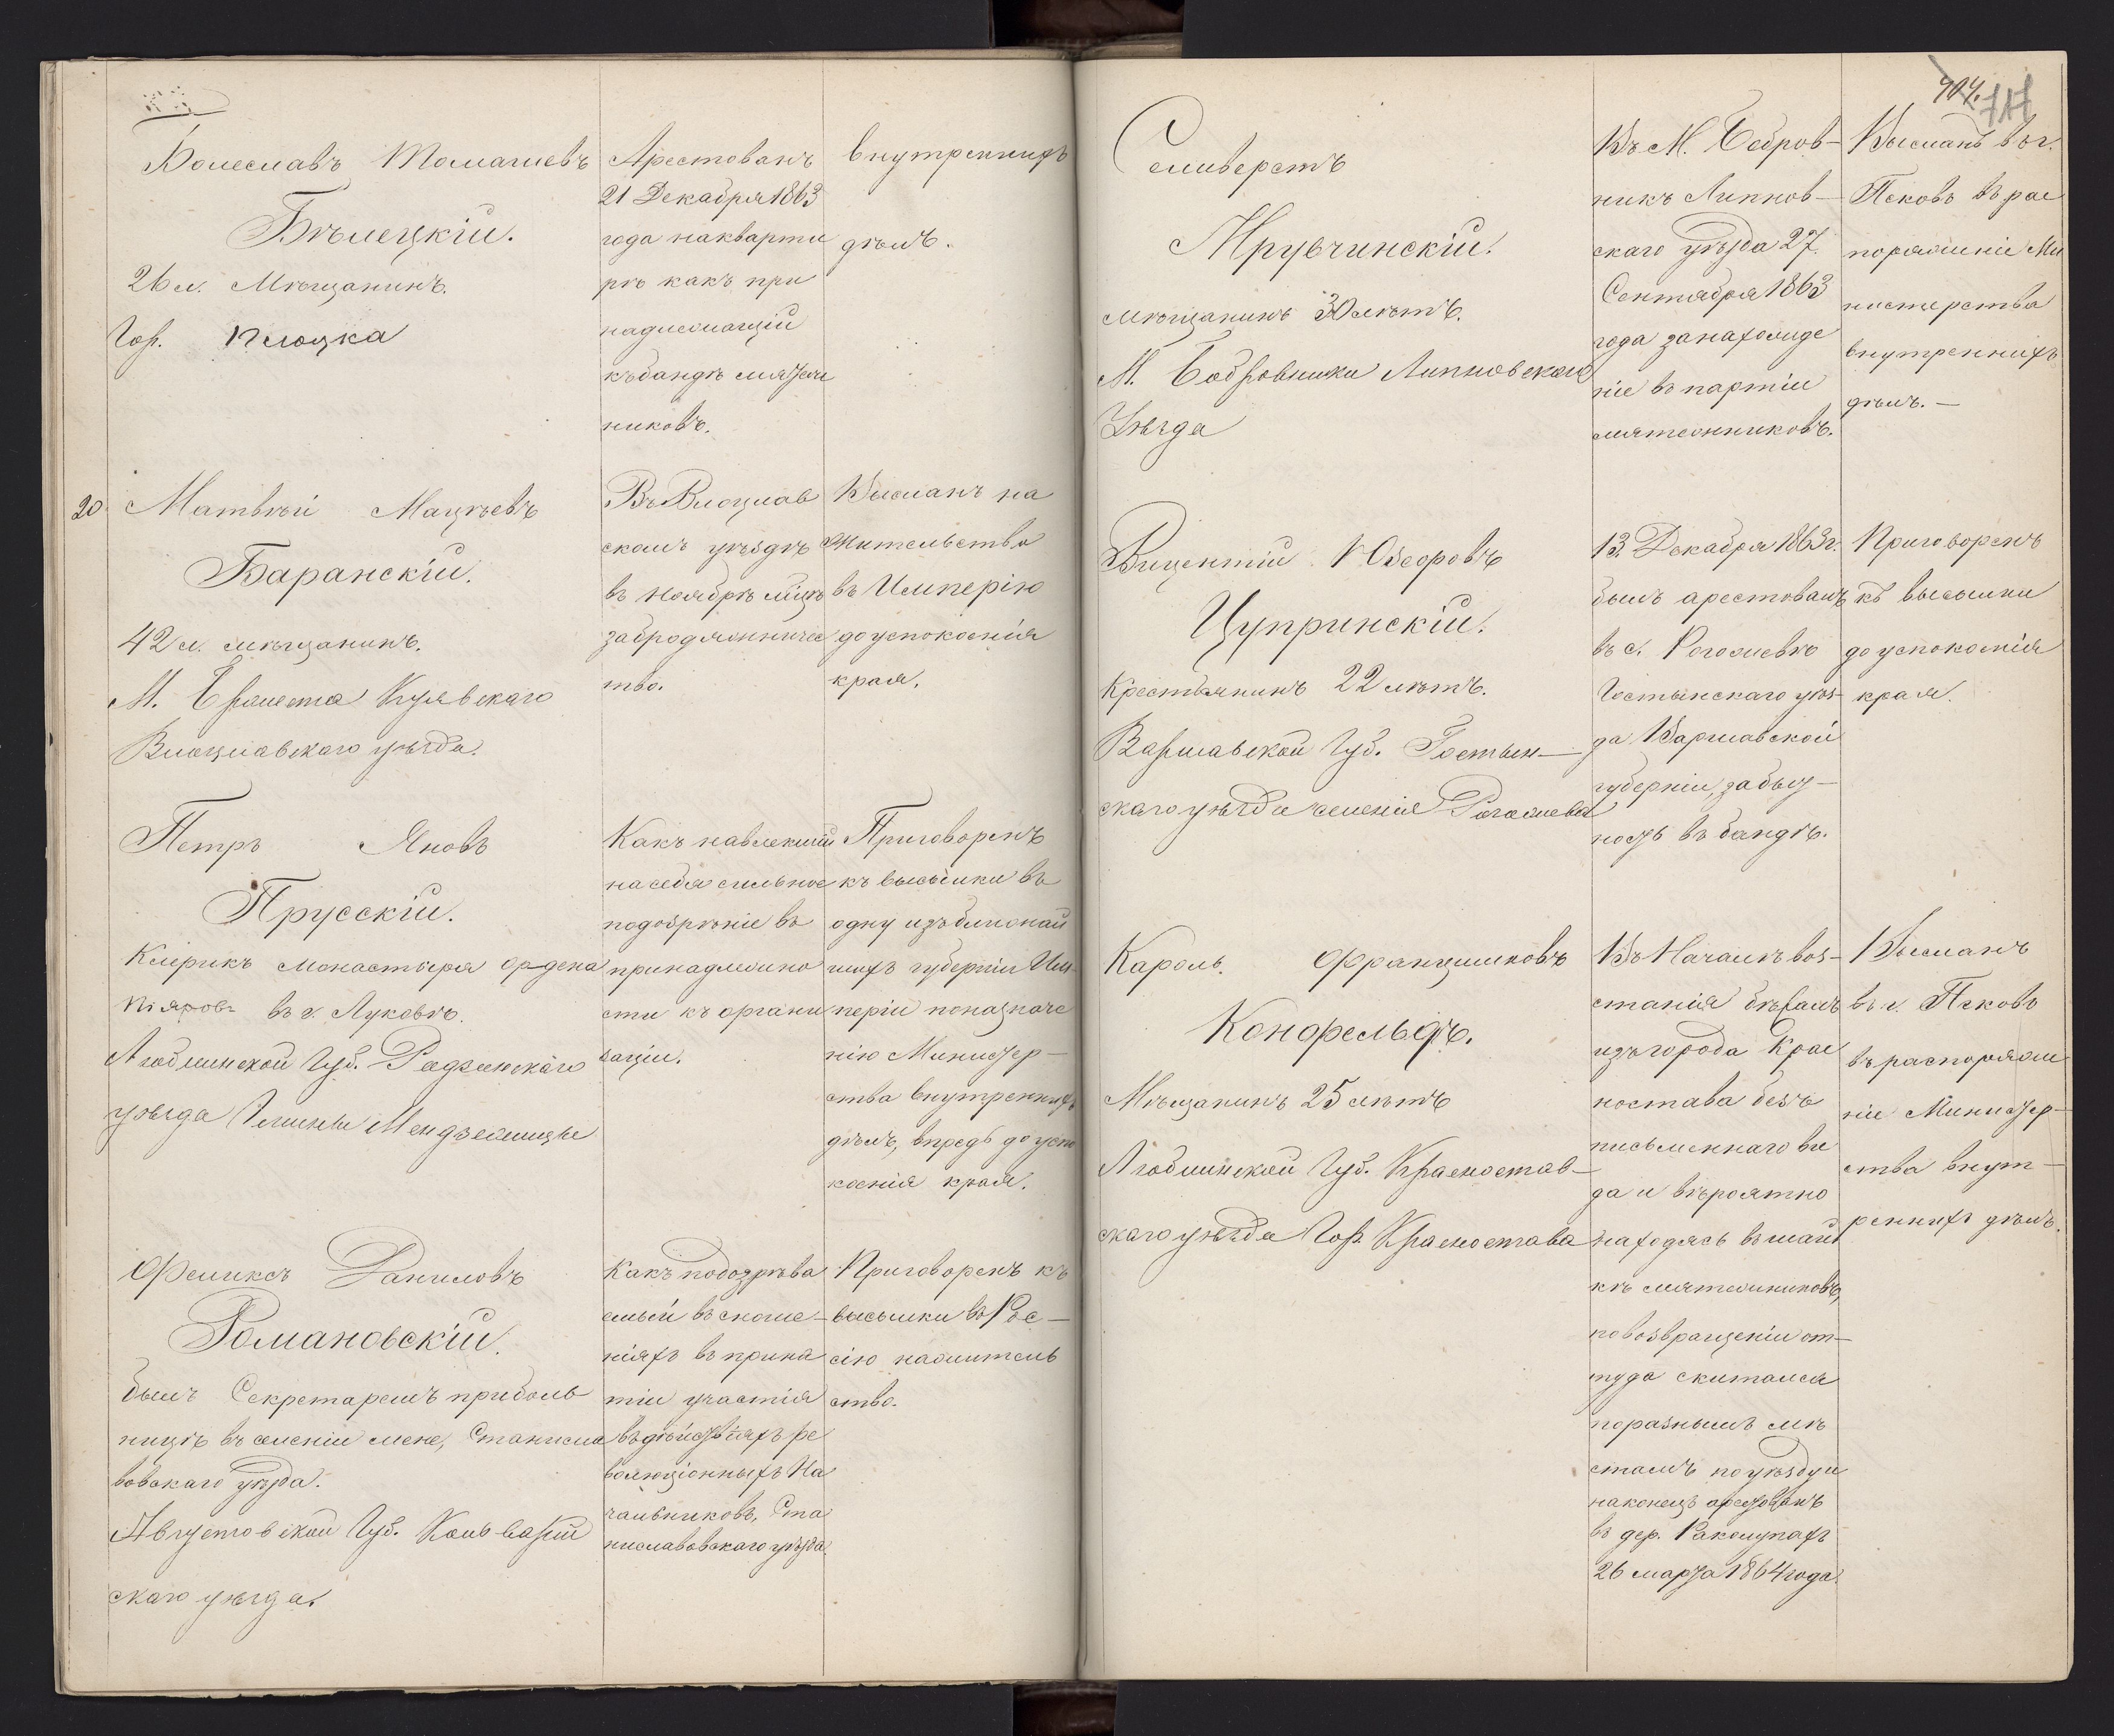 Болеславъ Томашевъ
Бѣлецкій.
26 л. Мѣщанинъ.
Гор. Плоцка
Арестованъ
21 Декабря 1863
года на кварти
рѣ какъ при
надлежащій
къ бандѣ мятеж
никовъ.
внутреннихъ
дѣлъ.
20. Матвѣй Мацѣевъ
Баранскій.
42 л. мѣщанинъ.
М. Бржеста Куявскаго
Влоцлавскаго уѣзда.
Въ Влоцлав
скомъ уѣздѣ
въ Ноябрѣ мѣцѣ
за бродяжничес
тво.
Высланъ на
жительство
въ Имперію
до успокоенія
края.
Петръ Яновъ
Прусскій.
Клерикъ монастыря ордена
Піяровъ въ г. Луковѣ.
Люблинской Губ. Радзинскаго
уѣзда Гмины Мендзелинцы
Какъ навлекшій
на себя сильное
подозрѣніе въ
принадлежно
сти къ органи
заціи.
Приговоренъ
къ высылки въ
одну изъ ближай
шихъ губерніи Им
періи по назначе
нію Министер-
ства внутреннихъ
дѣлъ, впредь до успо
коенія края.
Феликсъ Даниловъ
Романовскій.
былъ Секретаремъ при боль
ницѣ въ селеніи Мене, Станисла
вовскаго уѣзда.
Августовской Губ. Кальварій
скаго уѣзда.
Какъ подозрѣва
емый въ сноше-
ніяхъ въ приня
тіи участія
въ дѣйствіяхъ ре
волюціонныхъ На
чальниковъ, Ста
ниславовскаго уѣзда.
Приговоренъ къ
высылки въ Рос-
сію на житель
ство.
904. 717
Селиверстъ
Мрувчинскій.
мѣщанинъ 30 лѣтъ.
М. Бобровники Липновскаго
Уѣзда
Въ М. Бобров-
никъ Липнов-
скаго уѣзда 27
Сентября 1863
года за нахожде
ніе въ партіи
мятежниковъ.
Высланъ въ г.
Псковъ въ рас
поряженіе Ми
нистерства
внутреннихъ
дѣлъ.-
Вицентій Юзефовъ
Цупринскій.
Крестьянинъ 22 лѣтъ.
Варшавской Губ. Гостын-
скаго уѣзда селенія Рогожева
13 Декабря 1863 г.
былъ арестованъ
въ с. Рогожевѣ
Гостынскаго уѣз-
да Варшавской
губерніи, за быт-
ность въ бандѣ.
Приговоренъ
къ высылки
до успокоенія
края.
Кароль Францишковъ
Конфельдъ.
Мѣщанинъ 25 лѣтъ
Люблинской Губ. Красностав-
скаго уѣзда Гор. Красностава
Въ Началѣ воз-
станія бѣжалъ
изъ города Крас
ностава безъ
письменнаго ви
да и вѣроятно
находясь въ шай
кѣ мятежниковъ,
по возвращеніи от-
туда скитался
по разнымъ мѣ
стамъ по уѣзду и
наконецъ арестованъ
въ дер. Раколупахъ
26 марта 1864 года.
Высланъ
въ г. Псковъ
въ распоряже
ніе Министер-
ства внут-
реннихъ дѣлъ.